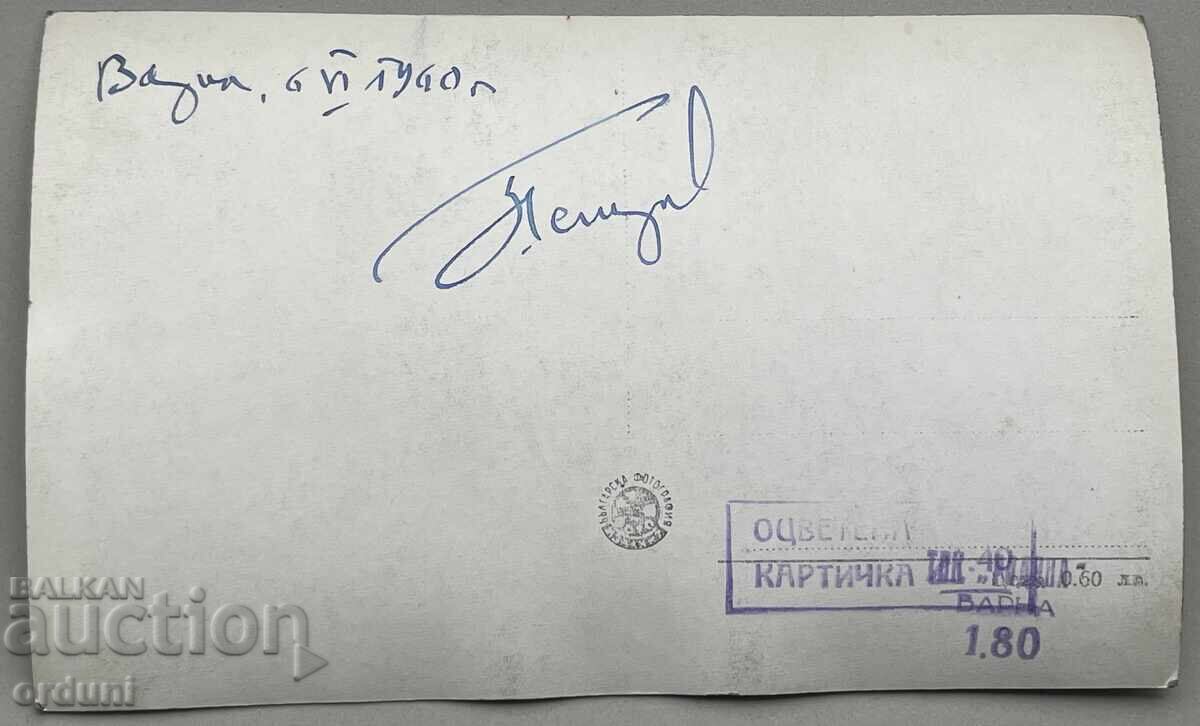 Варна, 6 VI 1960 г
Петров
БЪЛГЕРСКА ФОТОГРАФИЯ
ОЦВЕТЕНА
КАРТИЧКА
40
Цена 0.60 лв.
ВАРНА
1.80
BALKAN
auction
orduni